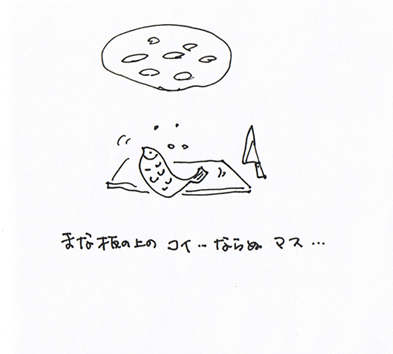 まな板の上の コイ‥ならぬ マス…